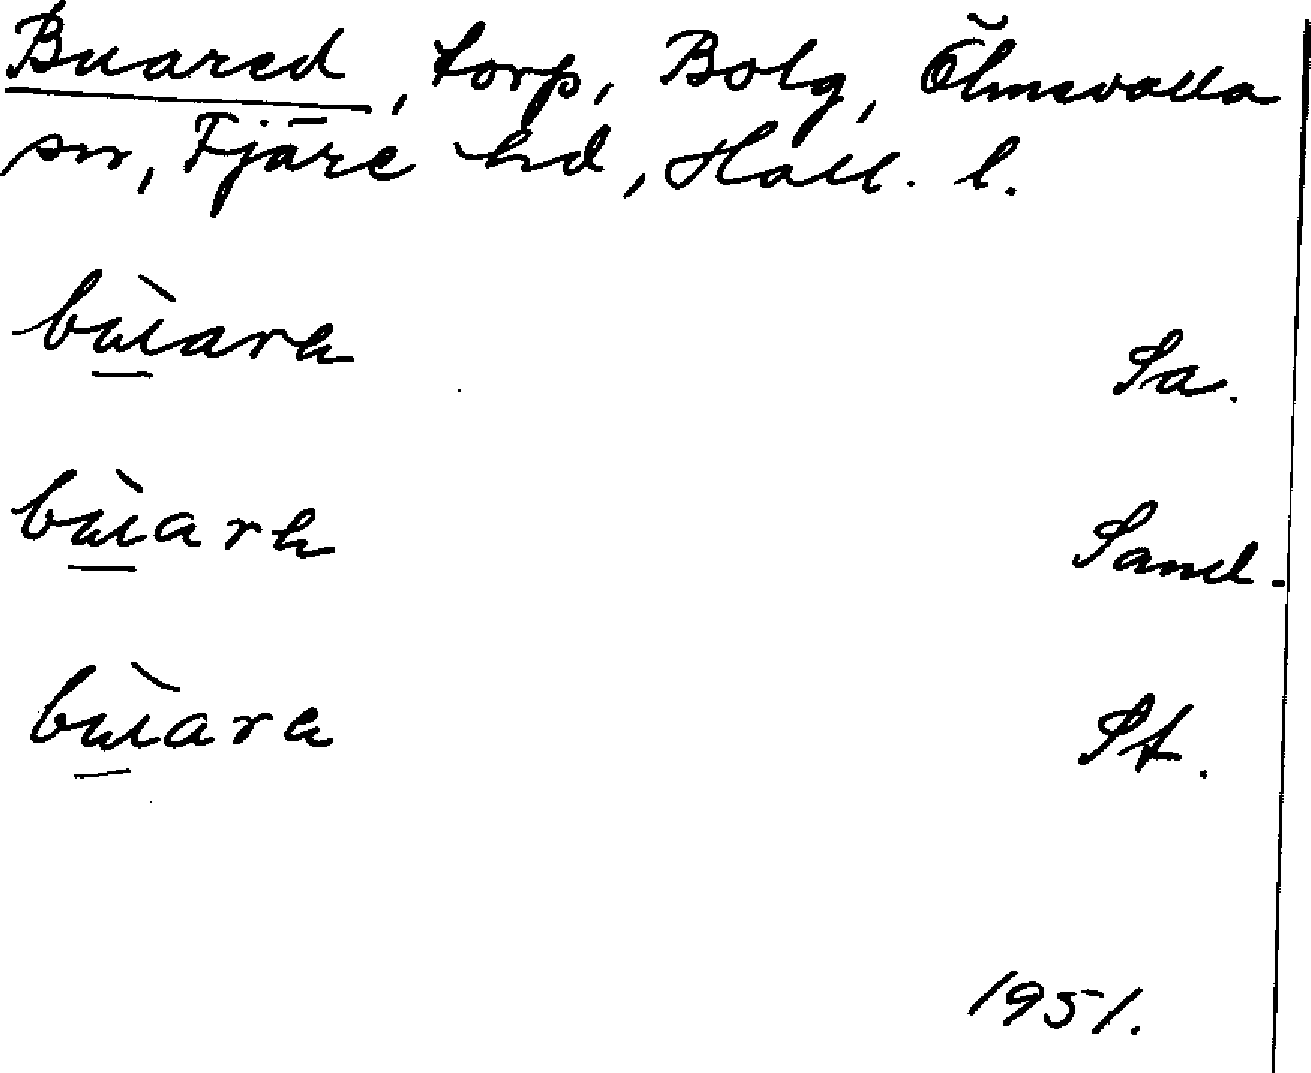 Buared, torp, Bolg, Ölmevalla
sn, Fjäre hd, Hall. l.
bùara Sa.
bùara Sand.
bùara St.
1951.